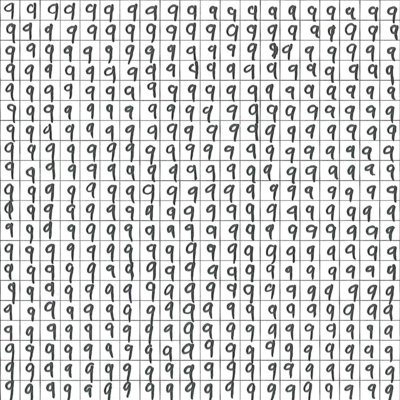 9 9 9 9 9 9 9 9 9 9 9 9 9 9 9 9 9 9 9 9
9 9 9 9 9 9 9 9 9 9 9 9 9 9 9 9 9 9 9 9
9 9 9 9 9 9 9 9 9 9 9 9 9 9 9 9 9 9 9 9
9 9 9 9 9 9 9 9 9 9 9 9 9 9 9 9 9 9 9 9
9 9 9 9 9 9 9 9 9 9 9 9 9 9 9 9 9 9 9 9
9 9 9 9 9 9 9 9 9 9 9 9 9 9 9 9 9 9 9 9
9 9 9 9 9 9 9 9 9 9 9 9 9 9 9 9 9 9 9 9
9 9 9 9 9 9 9 9 9 9 9 9 9 9 9 9 9 9 9 9
9 9 9 9 9 9 9 9 9 9 9 9 9 9 9 9 9 9 9 9
9 9 9 9 9 9 9 9 9 9 9 9 9 9 9 9 9 9 9 9
9 9 9 9 9 9 9 9 9 9 9 9 9 9 9 9 9 9 9 9
9 9 9 9 9 9 9 9 9 9 9 9 9 9 9 9 9 9 9 9
9 9 9 9 9 9 9 9 9 9 9 9 9 9 9 9 9 9 9 9
9 9 9 9 9 9 9 9 9 9 9 9 9 9 9 9 9 9 9 9
9 9 9 9 9 9 9 9 9 9 9 9 9 9 9 9 9 9 9 9
9 9 9 9 9 9 9 9 9 9 9 9 9 9 9 9 9 9 9 9
9 9 9 9 9 9 9 9 9 9 9 9 9 9 9 9 9 9 9 9
9 9 9 9 9 9 9 9 9 9 9 9 9 9 9 9 9 9 9 9
9 9 9 9 9 9 9 9 9 9 9 9 9 9 9 9 9 9 9 9
9 9 9 9 9 9 9 9 9 9 9 9 9 9 9 9 9 9 9 9